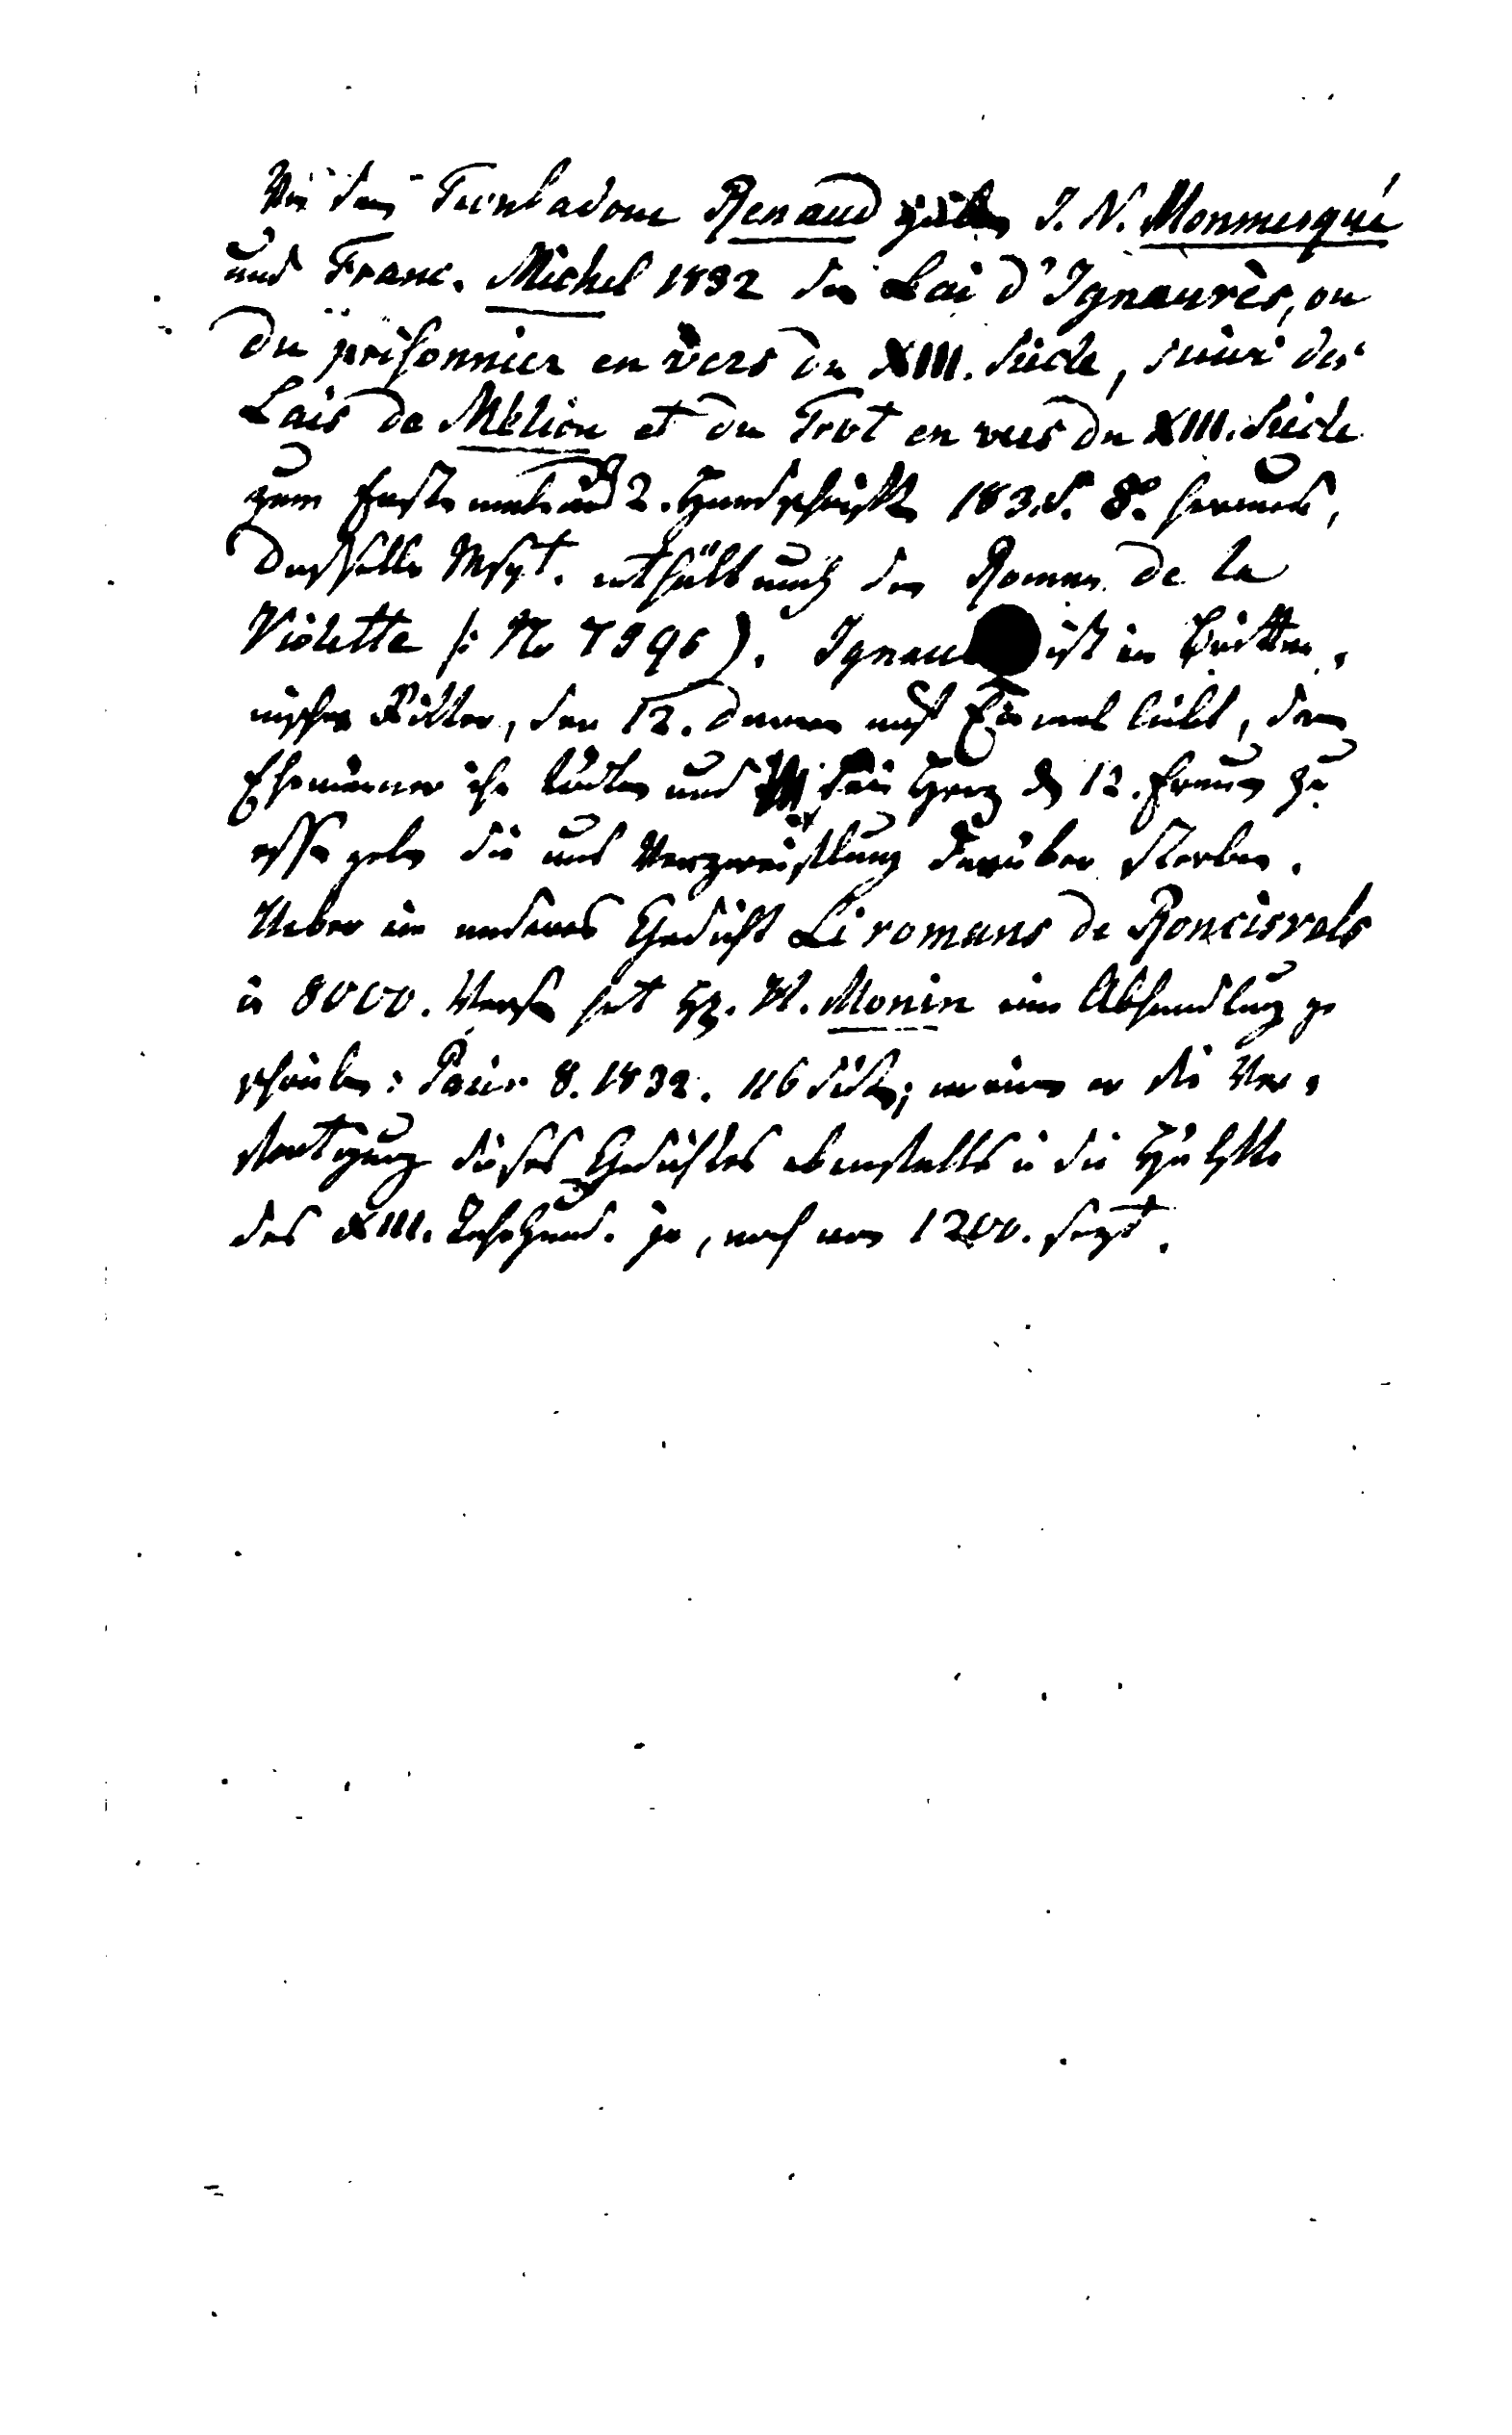 Von dem Troubadour Renaud gaben J. N. Monmerqué
und Franc. Michel 1832 die Lai d'Ignaurès, ou
du prisonnier en vers du XIII. Siécle, suivi des
Lais de Mélion et du Trot en vers du XIII. Siécle
zum Erste male aus 2. Handschrift 183. S. 8° heraus,
dasselbe Mspt. enthält auch den Roman de la
Violette (: No 7595). Ignau ist ein Britta,
nischer Ritter, der 12. Damen auf Einmal liebt, deren
Ehemänner ihn tödten und sein Herz den 12. Frauen zu
essen geben die aus Verzweiflung darüber sterben.
Ueber ein anderes Gedicht Li romans de Roncisvals
in 8000. Versen hat H. Monin eine Abhandlung ge
schrieben: Paris 8. 1832. 116 Seiten; worinn er die Ver,
fertigung dieses Gedichtes ebenfalls in die Hälfte
des XIII. Jahrhund. ja, noch vor 1200. sezt.